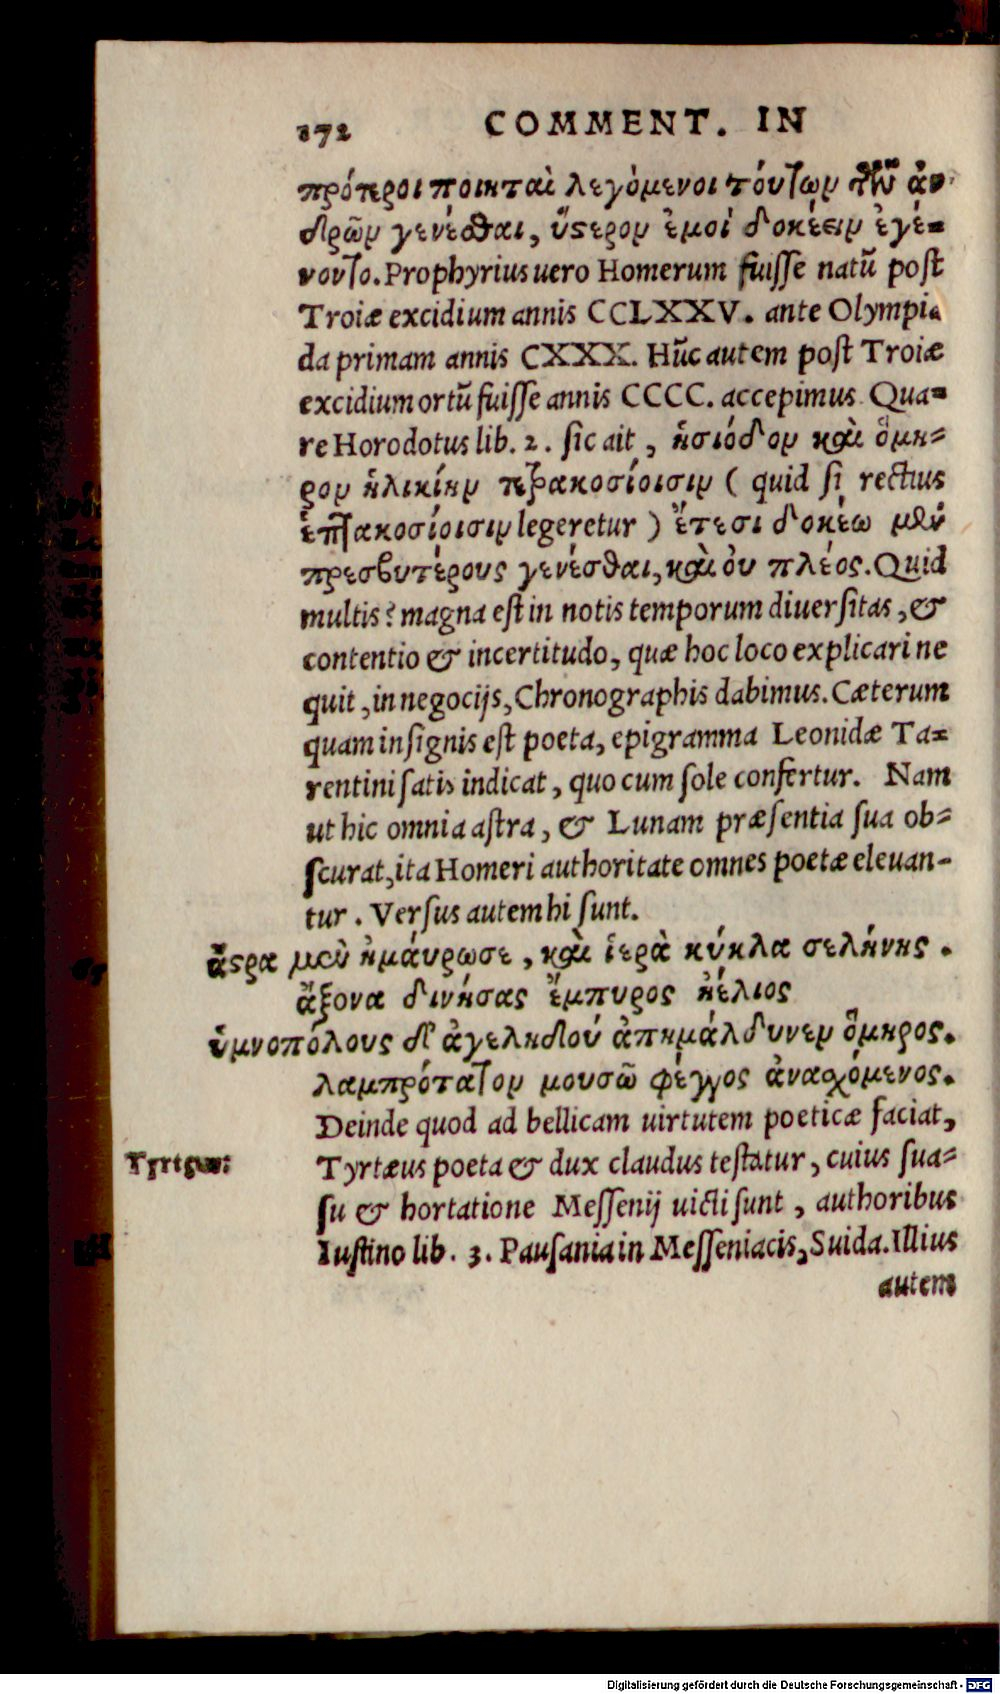 172 COMMENT. IN
πρότεροι ποιηταὶ λεγόμενοι τούτων τῶν ἀν-
δρῶν γενέσθαι, ὕστερον ἐμοὶ δοκέειν ἐγέ-
νοντο. Prophyrius uero Homerum fuisse natũ post
Troiæ excidium annis CCLXXV. ante Olympia
da primam annis CXXX. Hũc autem post Troiæ
excidium ortũ fuisse annis CCCC. accepimus. Qua-
re Horodotus lib. 2. sic ait, ἡσιόδον καὶ ὅμη-
ρον ἡλικίην τετρακοσίοισιν ( quid si rectius
ἑπτακοσίοισιν legeretur ) ἔτεσι δοκέω μὲν
πρεσβυτέρους γενέσθαι, καὶ ὀυ πλέος. Quid
multis? magna est in notis temporum diuersitas, &
contentio & incertitudo, quæ hoc loco explicari ne
quit, in negocijs, Chronographis dabimus. Cæterum
quam insignis est poeta, epigramma Leonidæ Ta-
rentini satis indicat, quo cum sole confertur. Nam
ut hic omnia astra, & Lunam præsentia sua ob-
scurat, ita Homeri authoritate omnes poetæ eleuan-
tur. Versus autem hi sunt.
ἄστρα μὲν ἠμάυρωσε, καὶ ἱερὰ κύκλα σελήνης.
ἄξονα δινήσας ἔμπυρος ἠέλιος
ὑμνοπόλους δ' ἀγεληδὸν ἀπημάλδυνεν ὅμηρος.
λαμπρότατον μουσῶ φέγγος ἀνασχόμενος.
Deinde quod ad bellicam uirtutem poeticæ faciat,
Tyrtæus:
Tyrtæus poeta & dux claudus testatur, cuius sua-
su & hortatione Messenij uicti sunt, authoribus
Iustino lib. 3. Pausania in Messeniacis, Suida. Illius
autem
Digitalisierung gefördert durch die Deutsche Forschungsgemeinschaft - DFG